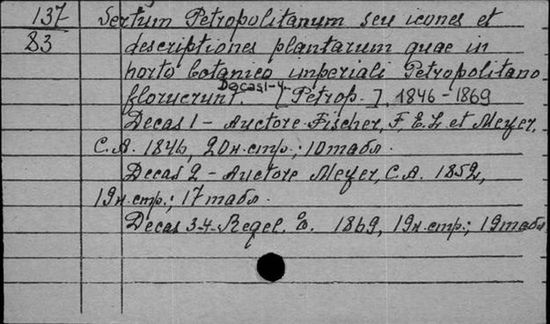 137 Sertum Petropolitanum seu icones et
83 descriptiones plantarum quae in
horto botanico imperiali Petropolitano
Decas 1-4.
floruerunt. [Petrop.], 1846-1869
Decas 1 - Auctore Fischer, F. E. L. et Meyer,
C. A. 1846, 20 н. стр.; 10 табл.
Decas 2 - Auctore Meyer, C. A. 1852,
19 н. стр.; 17 табл.
Decas 3-4 - Regel, E. 1869, 19 н. стр.; 19 табл.